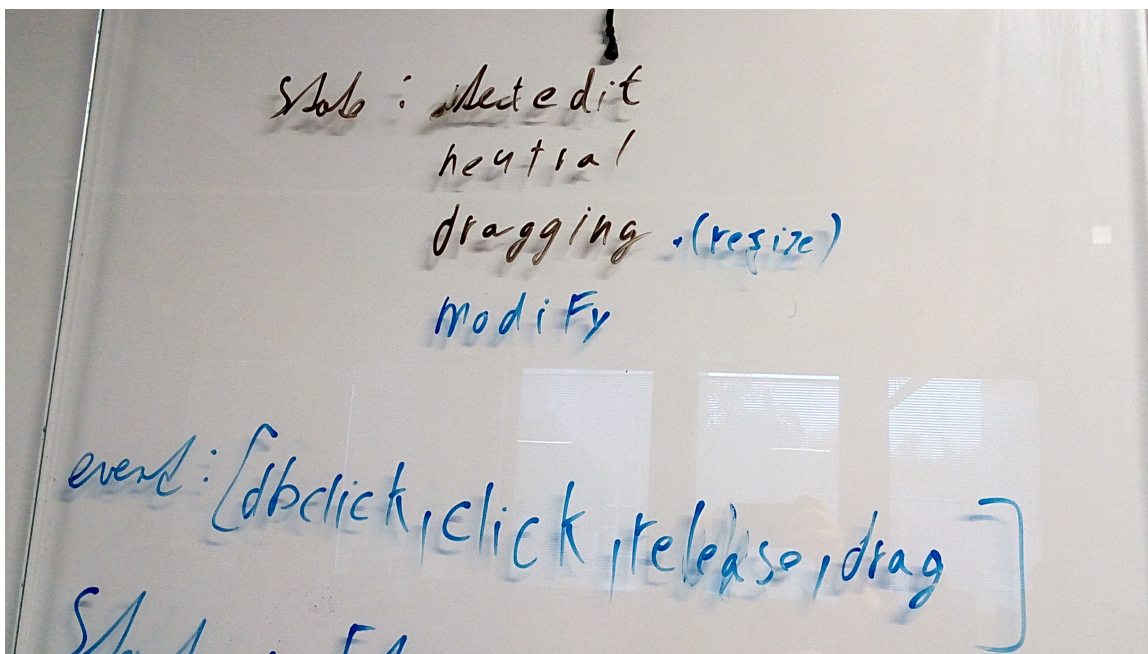 state : edit
neutral
dragging .(resize)
modify
event : [dbclick, click, release, drag ]